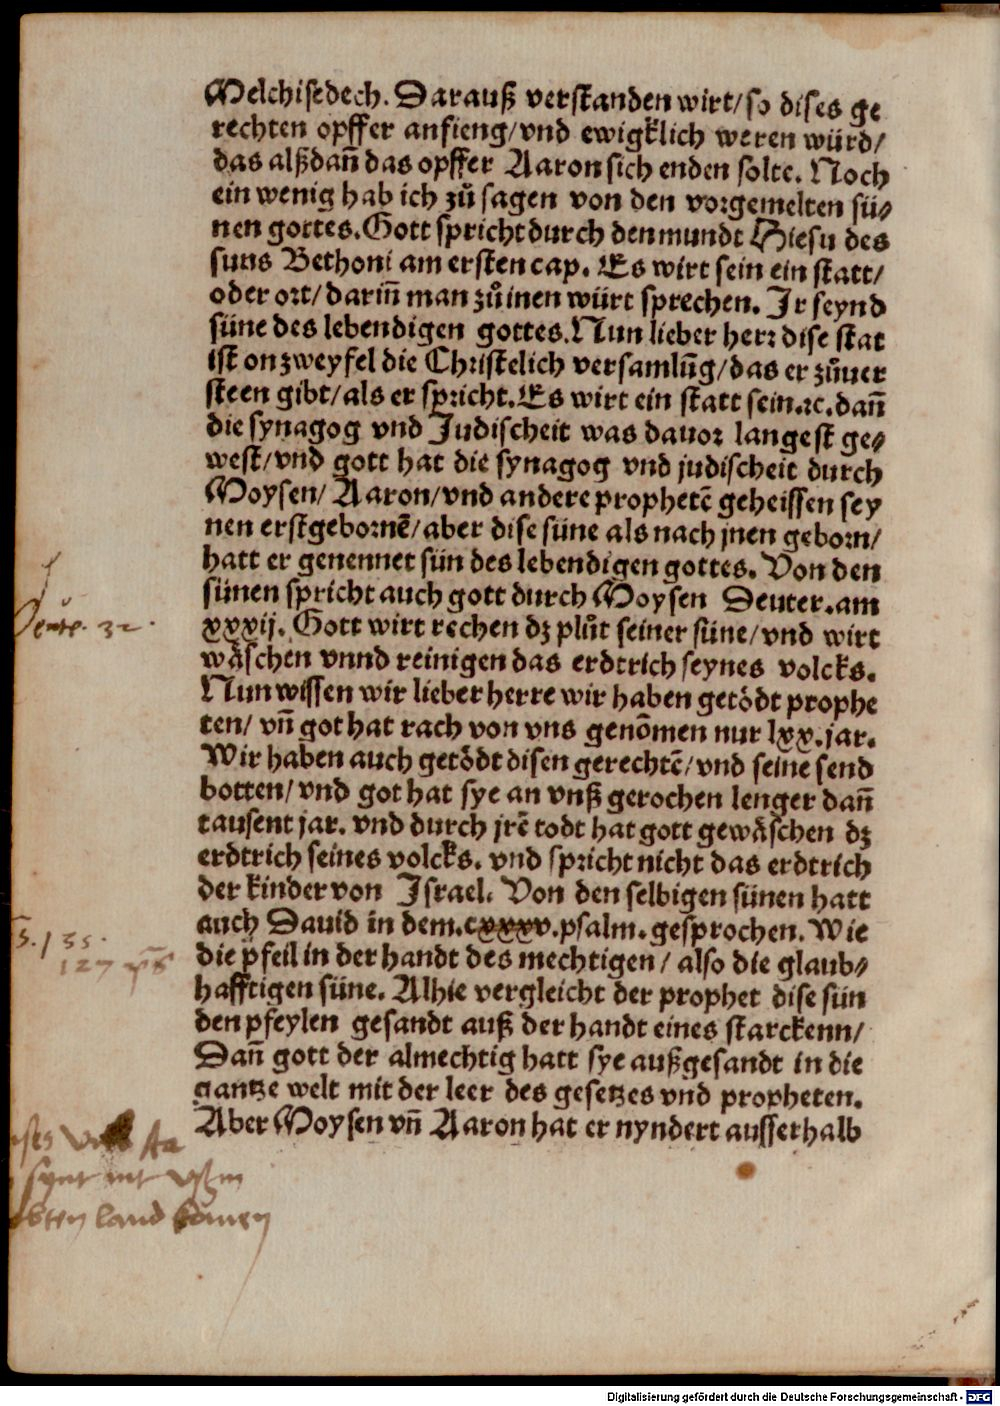 Melchisedech. Darauß verstanden wirt/so dises ge
rechten opffer anfieng/vnd ewigklich weren würd/
das alßdañ das opffer Aaron sich enden solte. Noch
ein wenig hab ich zů sagen von den vorgemelten sü⸗
nen gottes. Gott spricht durch den mundt Hiesu des
suns Bethoni am ersten cap. Es wirt sein ein statt/
oder ort/dariñ man zů inen würt sprechen. Ir seynd
süne des lebendigen gottes. Nun lieber herr dise stat
ist on zweyfel die Christelich versamlūg/das er zůuer
steen gibt/als er spricht. Es wirt ein statt sein.ꝛc.dañ
die synagog vnd Judischeit was dauor langest ge⸗
west/vnd gott hat die synagog vnd judischeit durch
Moysen/Aaron/vnd andere prophetē geheissen sey
nen erstgebornē/aber dise süne als nach jnen geborn/
hatt er genennet sün des lebendigen gottes. Von den
sünen spricht auch gott durch Moysen Deuter.am
xxxij. Gott wirt rechen dz plůt seiner süne/vnd wirt
wäschen vnnd reinigen das erdtrich seynes volcks.
Nun wissen wir lieber herre wir haben getödt prophe
ten/vñ got hat rach von vns genōmen nur lxx.jar.
Wir haben auch getödt disen gerechtē/vnd seine send
botten/vnd got hat sye an vnß gerochen lenger dañ
tausent jar. vnd durch jrē todt hat gott gewäschen dz
erdtrich seines volcks. vnd spricht nicht das erdtrich
der kinder von Israel. Von den selbigen sünen hatt
auch Dauid in dem.cxxxv.psalm.gesprochen. Wie
die pfeil in der handt des mechtigen/also die glaub⸗
hafftigen süne. Alhie vergleicht der prophet dise sün
den pfeylen gesandt auß der handt eines starckenn/
Dañ gott der almechtig hatt sye außgesandt in die
gantze welt mit der leer des gesetzes vnd propheten.
Aber Moysen vñ Aaron hat er nyndert ausserhalb
Deute. 32.
135.
127
synt nit
land
Digitalisierung gefördert durch die Deutsche Forschungsgemeinschaft - DFG